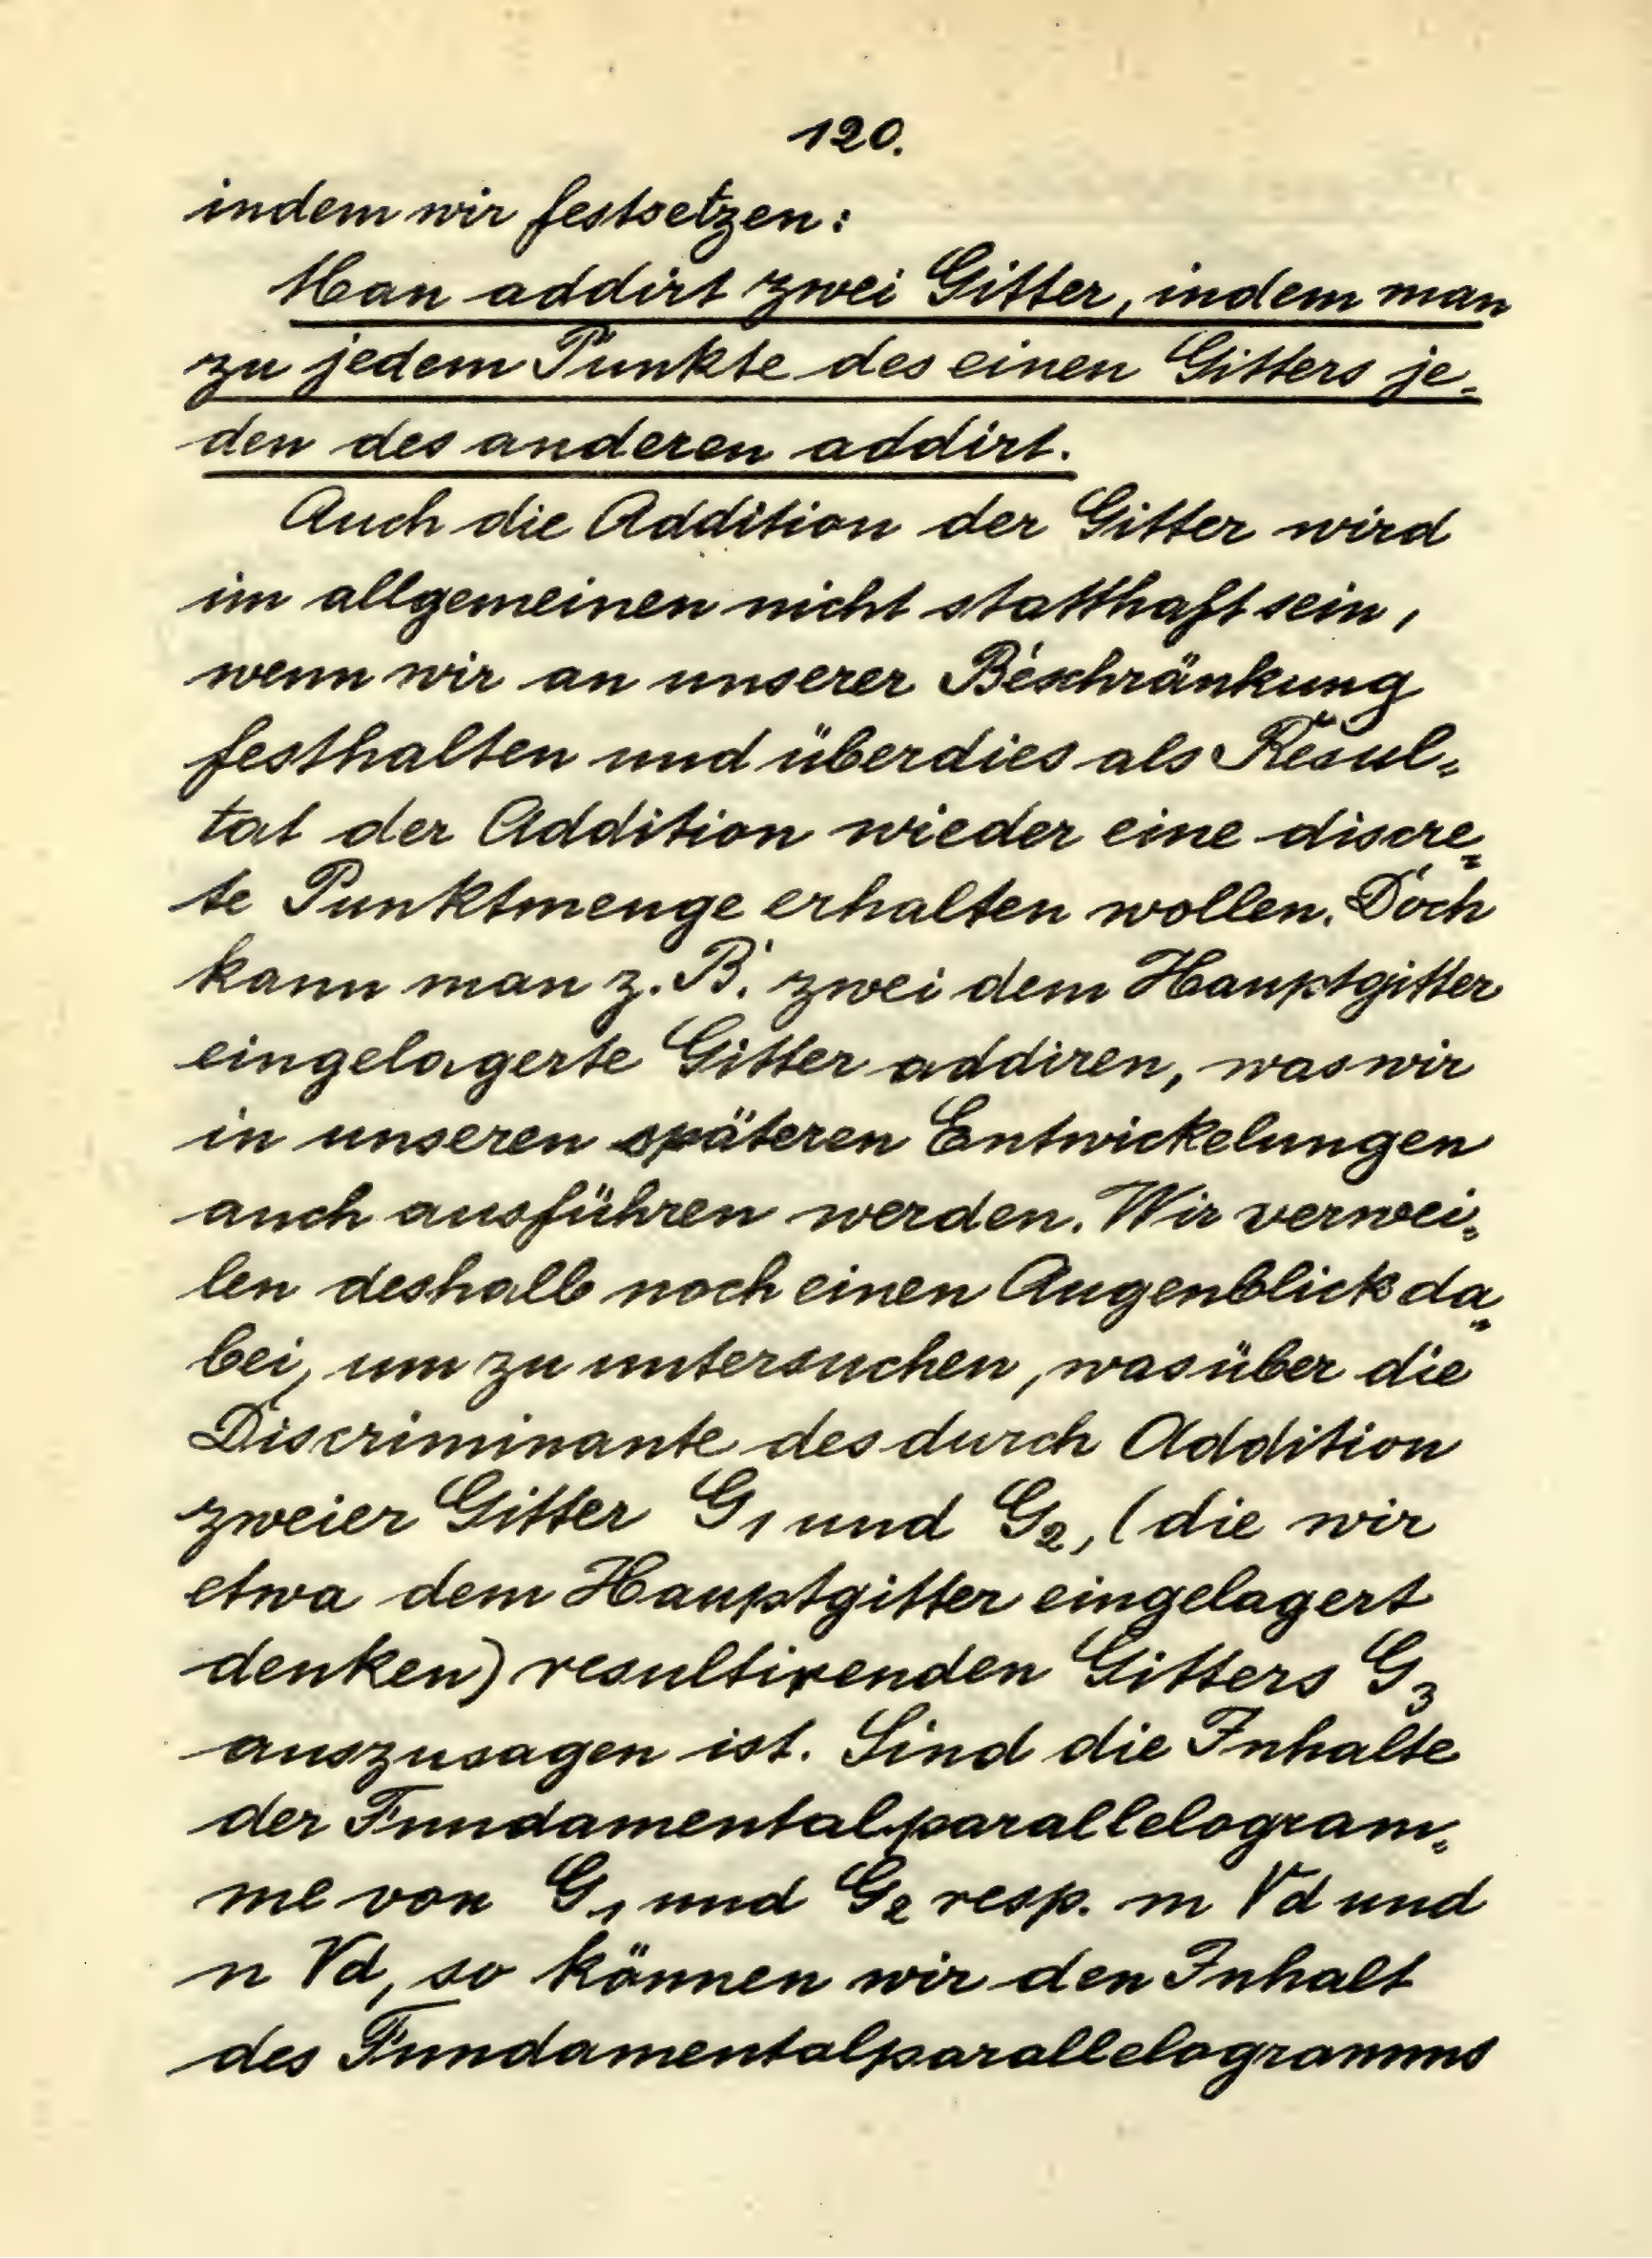 120.
indem wir festsetzen:
Man addirt zwei Gitter, indem man
zu jedem Punkte des einen Gitters je=
den des anderen addirt.
Auch die Addition der Gitter wird
im allgemeinen nicht statthaft sein,
wenn wir an unserer Beschränkung
festhalten und überdies als Resul=
tat der Addition wieder eine discre=
te Punktmenge erhalten wollen. Doch
kann man z. B. zwei dem Hauptgitter
eingelagerte Gitter addiren, was wir
in unseren späteren Entwickelungen
auch ausführen werden. Wir verwei=
len deshalb noch einen Augenblick da=
bei, um zu untersuchen, was über die
Discriminante des durch Addition
zweier Gitter G₁ und G₂, (die wir
etwa dem Hauptgitter eingelagert
denken) resultirenden Gitters G₃
auszusagen ist. Sind die Inhalte
der Fundamentalparallelogram=
me von G₁ und G₂ resp. m √d und
n √d, so können wir den Inhalt
des Fundamentalparallelogramms